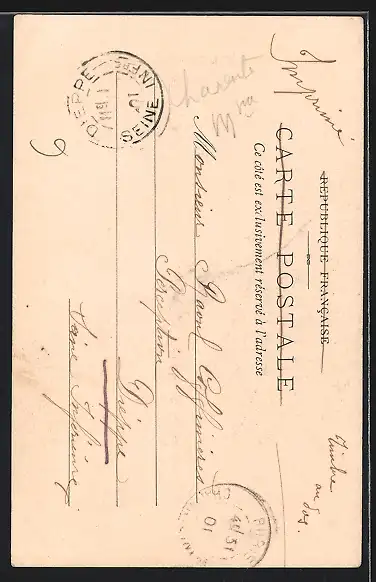 Imprimé
RÉPUBLIQUE FRANÇAISE
CARTE POSTALE
Ce côté est exclusivement réservé à l'adresse
Timbre
au dos.
Charente
Monsieur Raoul
Perception
Dieppe
Seine Inférieure
DIEPPE
SEINE INFRE
01
9